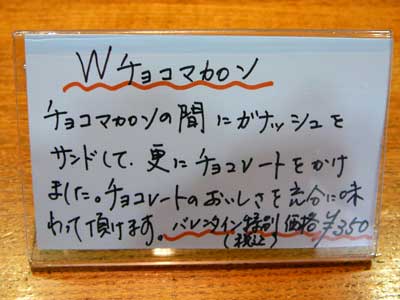 Wチョコマカロン
チョコマカロンの間にガナッシュを
サンドして、更にチョコレートをかけ
ました。チョコレートのおいしさを充分に味
わって頂けます。バレンタイン特別価格¥350
(税込)